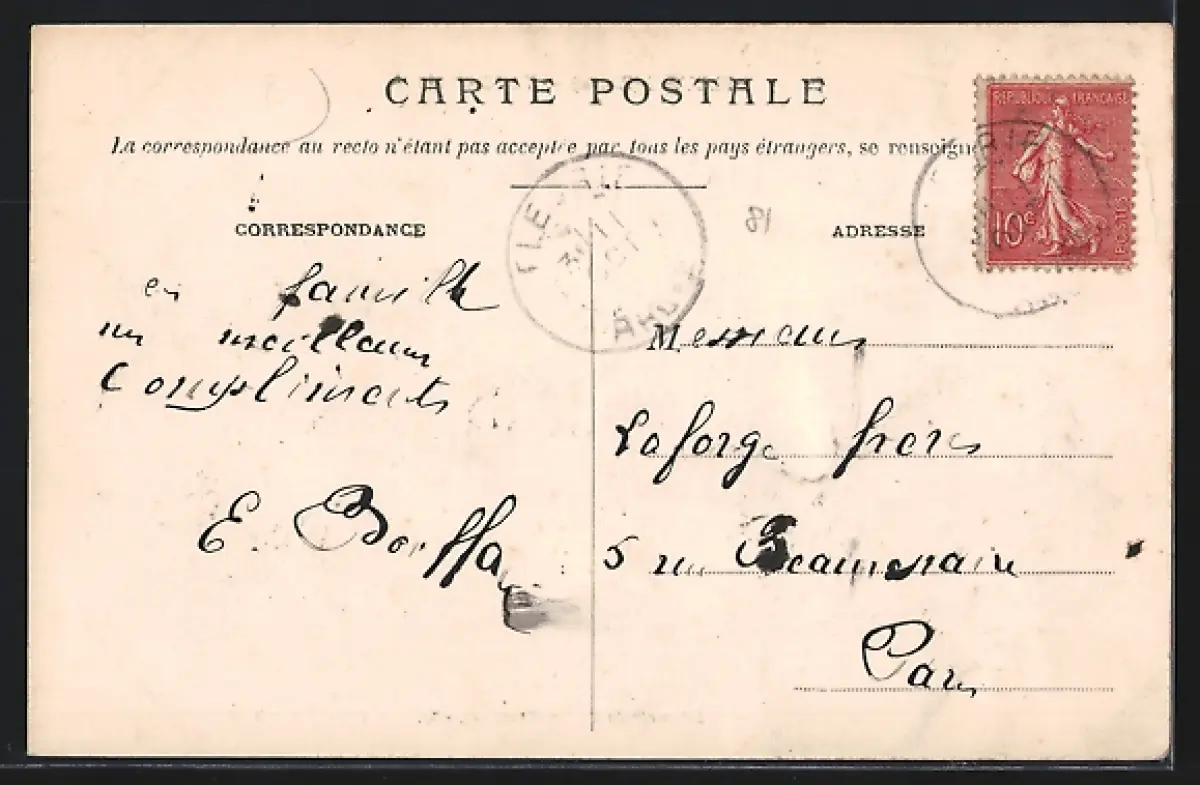 CARTE POSTALE
La correspondance au recto n'étant pas acceptée par tous les pays étrangers, se renseign
CORRESPONDANCE
en famille
meilleurs
Compliments
E.
FLEURIE
81
ADRESSE
REPUBLIQUE FRANÇAISE
10c
POSTES
Messieurs
Laforge frères
5 rue Beaurepaire
Paris